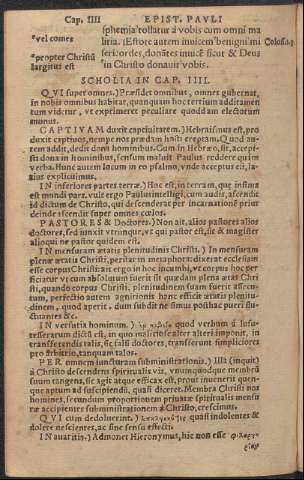 Cap. IIII EPIST. PAVLI
sphemia tollatur à vobis cum omni ma
*vel comes litia. (Estote autem inuicem benigni mi Coloss.3
*propter Christũ sericordes, donãtes inuicẽ sicut & Deus
largitus est in Christo donauit vobis.
SCHOLIA IN CAP. IIII.
QVI super omnes.) Præsidet omnibus, omnes gubernat,
in nobis omnibus habitat, quanquam hoc tertium additamen
tum videtur, vt exprimeret peculiare quoddam electorum
munus.
CAPTIVAM duxit captiuitatem.) Hebraismus est, pro
duxit captiuos, nempe nos prædam hosti ereptam. Quod au-
tem addit, dedit dona hominibus. Cum in Hebræo, sit, accepi-
sti dona in hominibus, sensum maluit Paulus reddere quàm
verba. Hunc autem locum in eo psalmo, vnde acceptus est, la-
tius explicuimus.
IN inferiores partes terræ.) Hoc est, in terram, quæ infima
est mundi pars, vult ergo Paulus intelligi, cum audis, ascendit
id dictum de Christo, qui descenderat per incarnationẽ prius
deinde ascendit super omnes cælos.
PASTORES & Doctores.) Non ait, alios pastores alios
doctores, sed iunxit vtrunque, vt qui pastor est, sit & magister
alioqui ne pastor quidem est.
IN mensuram ætatis plenitudinis Christi.) In mensuram
plenæ ætatis Christi, peritat in metaphora: dixerat ecclesiam
esse corpus Christi: ait ergo in hoc incumbi, vt corpus hoc per
ficiatur vt cum absolutum fuerit sit quædam plena ætas Chri
sti, quando corpus Christi, plenitudinem suam fuerit assecu-
tum, perfectio autem agnitionis hunc efficit ætatis plenitu-
dinem, quod aperit. dum subdit ne simus posthac pueri flu-
ctuantes &c.
IN versutia hominum.) quod verbum à lusu
tesserarum dictũ est, in quo maliciose alter alteri imponit, in
transferendis talis, sic falsi doctores, transferunt simpliciores
pro arbitrio, tanquam talos.
PER omnem iuncturam subministrationis.) Illa (inquit)
à Christo descendens spiritualis vis, vnumquodque membrũ
suum tangens, sic agit atque efficax est, prout inuenerit quen-
que aptum ad suscipiendũ, quasi diceret. Membra Christi nos
homines, secundum proportionem priuatæ spiritualis mensu
ræ accipientes subministrationem à Christo, crescimus.
QVI cum dedoluerint.) quasi indolentes &
dolere nescientes, ac sine sensu effecti.
In auaritia.) Admonet Hieronymus, hîc non esse